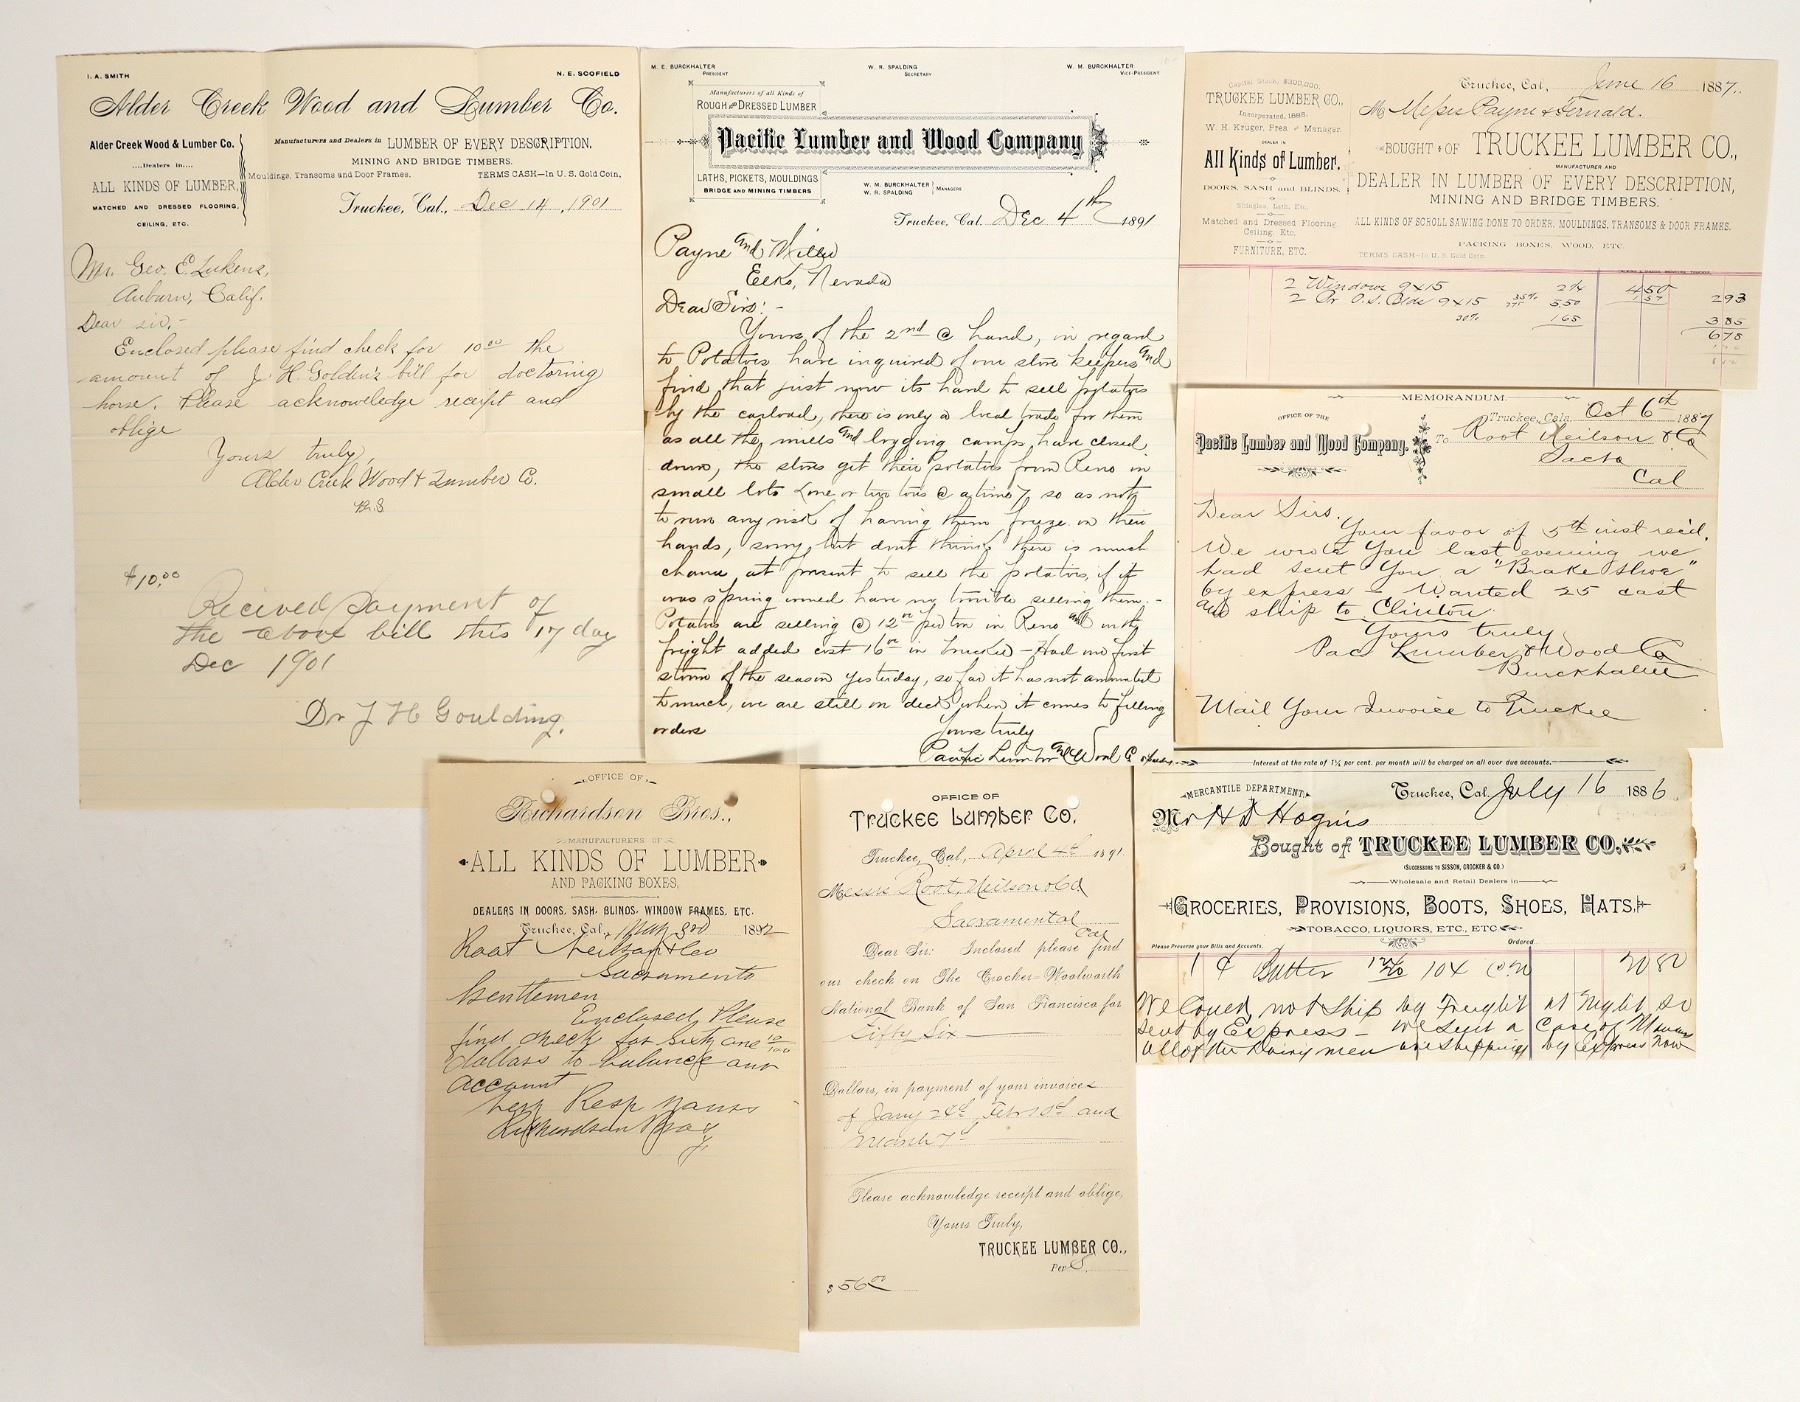 I. A. SMITH
N. E. SCOFIELD
Alder Creek Wood and Lumber Co.
Alder Creek Wood & Lumber Co.
....Dealers in....
ALL KINDS OF LUMBER,
MATCHED AND DRESSED FLOORING,
CEILING, ETC.
Manufacturers and Dealers in LUMBER OF EVERY DESCRIPTION,
MINING AND BRIDGE TIMBERS.
Mouldings, Transoms and Door Frames.
TERMS CASH—In U. S. Gold Coin.
Truckee, Cal., Dec 14, 1901
Mr. Geo. E. Lukens,
Auburn, Calif.
Dear sir,-
Enclosed please find check for 10.00 the
amount of J. H. Golden's bill for doctoring
horse. Please acknowledge receipt and
oblige
Yours truly,
Alder Creek Wood & Lumber Co.
$10.00
Recieved payment of
the above bill this 17 day
Dec 1901
Dr J H Goulding.
M. E. BURCKHALTER
PRESIDENT
W. R. SPALDING
SECRETARY
W. M. BURCKHALTER
VICE-PRESIDENT
Manufacturers of all Kinds of
ROUGH AND DRESSED LUMBER
Pacific Lumber and Wood Company
LATHS, PICKETS, MOULDINGS
BRIDGE AND MINING TIMBERS
W. M. BURCKHALTER
W. R. SPALDING
MANAGERS
Truckee, Cal. Dec 4th 1891
Payne and
Elko, Nevada
Dear Sirs:-
Yours of the 2nd @ hand, in regard
to Potatoes have inquired of our store keepers and
find that just now its hard to sell potatoes
by the carload, there is only a local trade for them
as all the mills and logging camps have closed
down, the stores get their potatoes from Reno in
small lots (one or two tons @ a time) so as not
to run any risk of having them freeze on their
hands, sorry but dont think there is much
chance at present to sell the potatoes, if it
was spring would have no trouble selling them.-
Potatoes are selling @ 12.00 per ton in Reno and with
freight added cost 16.00 in Truckee - Had our first
storm of the season yesterday, so far it has not amounted
to much, we are still on deck when it comes to filling
orders
Yours truly
Pacific Lumber and Wood Co
Capital Stock, $300,000.
TRUCKEE LUMBER CO.,
Incorporated, 1885.
W. H. Kruger, Pres and Manager.
DEALER IN
All Kinds of Lumber.
DOORS, SASH and BLINDS,
Shingles, Lath, Etc.
Matched and Dressed Flooring,
Ceiling, Etc.
FURNITURE, ETC.
Truckee, Cal, June 16 1887.
M Messrs Payne & Fernald.
BOUGHT OF TRUCKEE LUMBER CO.,
MANUFACTURER AND
DEALER IN LUMBER OF EVERY DESCRIPTION,
MINING AND BRIDGE TIMBERS.
ALL KINDS OF SCROLL SAWING DONE TO ORDER, MOULDINGS, TRANSOMS & DOOR FRAMES.
PACKING BOXES, WOOD, ETC.
TERMS CASH—In U. S. Gold Coin.
2 Windows 9x15 2¼ 450
157 293
2 Pr O.S. Blds 9x15 550
30% 165 385
678
MEMORANDUM.
OFFICE OF THE
Pacific Lumber and Wood Company.
Truckee, Cala. Oct 6th 1887
To Root Neilson & Co
Sacto
Cal
Dear Sirs.
Your favor of 5th inst rec'd.
We wrote You last evening we
had sent You a "Brake Shoe"
by express - Wanted 25 cast
and ship to Clinton.
Yours truly
Pac Lumber & Wood Co
Burckhalter
Mail Your Invoice to Truckee
OFFICE OF
Richardson Bros.,
MANUFACTURERS OF
ALL KINDS OF LUMBER
AND PACKING BOXES,
DEALERS IN DOORS, SASH, BLINDS, WINDOW FRAMES, ETC.
Truckee, Cal., 1892
Root Neilson & Co
Sacramento
Gentlemen
Enclosed Please
find check for Sixty one 10/100
dollars to balance our
account
Very Resp Yours
Richardson Bros
OFFICE OF
TRUCKEE LUMBER CO.
Truckee, Cal., April 4th 1891
Messrs Root, Neilson & Co
Sacramento
Cal
Dear Sir: Inclosed please find
our check on The Crocker-Woolworth
National Bank of San Francisco for
Fifty Six
Dollars, in payment of your invoices
of Jany 24th Feb 10th and
March 7th
Please acknowledge receipt and oblige,
Yours Truly,
TRUCKEE LUMBER CO.,
Per S.
$56.00
Interest at the rate of 1¼ per cent. per month will be charged on all over due accounts.
MERCANTILE DEPARTMENT.
Truckee, Cal. July 16 1886
Mr H D Hogins
Bought of TRUCKEE LUMBER CO.
(SUCCESSORS TO SISSON, CROCKER & CO.)
Wholesale and Retail Dealers in
GROCERIES, PROVISIONS, BOOTS, SHOES, HATS,
TOBACCO, LIQUORS, ETC., ETC
Please Preserve your Bills and Accounts.
Ordered
1 Butter 104 20 80
We Could not Ship by Freight at Night So
Sent by Express - We Sent a Case of
all of the Dairy men are shipping by Express Now